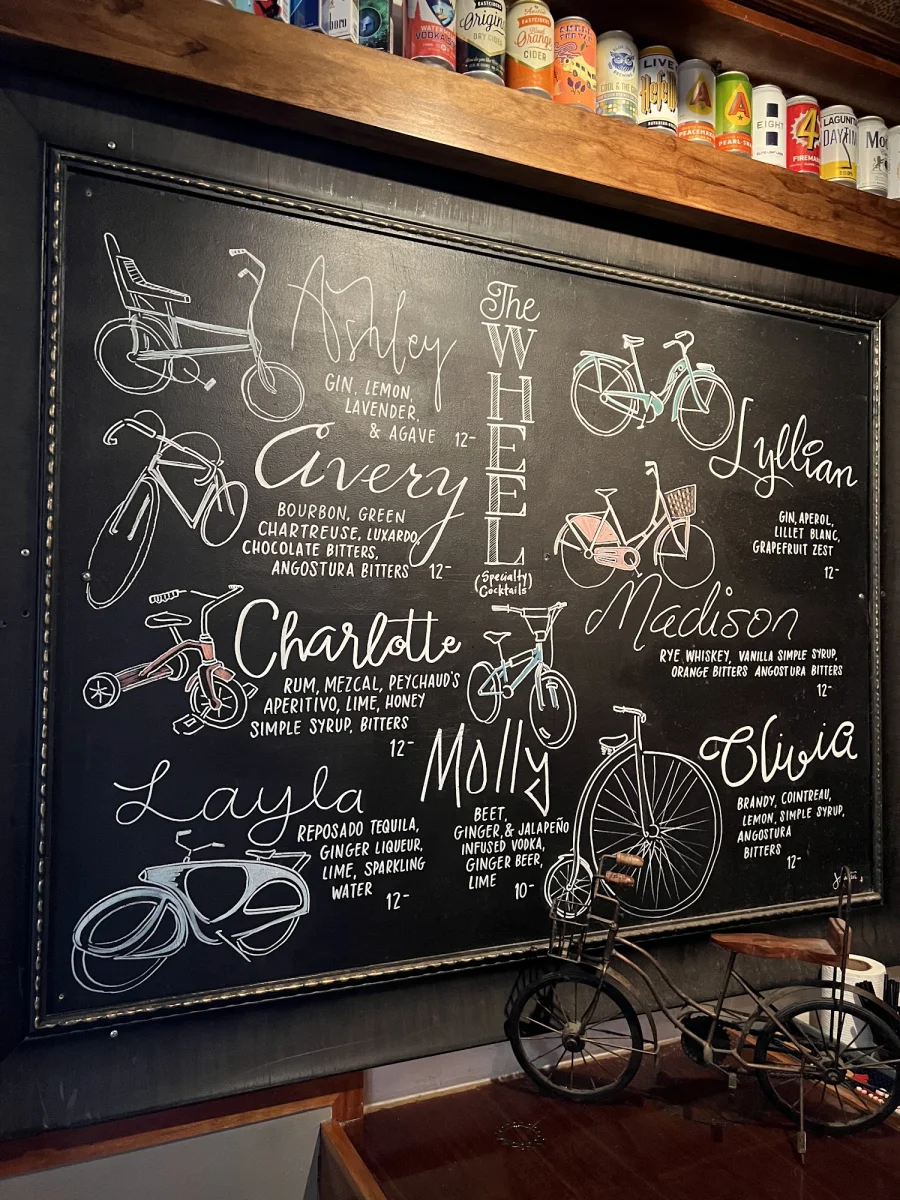 WATERMELON
VODKA
EASTCIDERS
Original
DRY CIDER
Austin
EASTCIDERS
Blood
Orange
CIDER
LIVE
Hefe
A
PEACEMAKER
A
PEARL-SNAP
EIGHT
4
LAGUNITAS
DAYTIME
The
WHEEL
(Specialty
Cocktails)
Ashley
GIN, LEMON,
LAVENDER,
& AGAVE 12-
Avery
BOURBON, GREEN
CHARTREUSE, LUXARDO,
CHOCOLATE BITTERS,
ANGOSTURA BITTERS 12-
Charlotte
RUM, MEZCAL, PEYCHAUD'S
APERITIVO, LIME, HONEY
SIMPLE SYRUP, BITTERS
12-
Layla
REPOSADO TEQUILA,
GINGER LIQUEUR,
LIME, SPARKLING
WATER 12-
Molly
BEET,
GINGER, & JALAPEÑO
INFUSED VODKA,
GINGER BEER,
LIME 10-
Lyllian
GIN, APEROL,
LILLET BLANC,
GRAPEFRUIT ZEST
12-
Madison
RYE WHISKEY, VANILLA SIMPLE SYRUP,
ORANGE BITTERS ANGOSTURA BITTERS
12-
Olivia
BRANDY, COINTREAU,
LEMON, SIMPLE SYRUP,
ANGOSTURA
BITTERS
12-